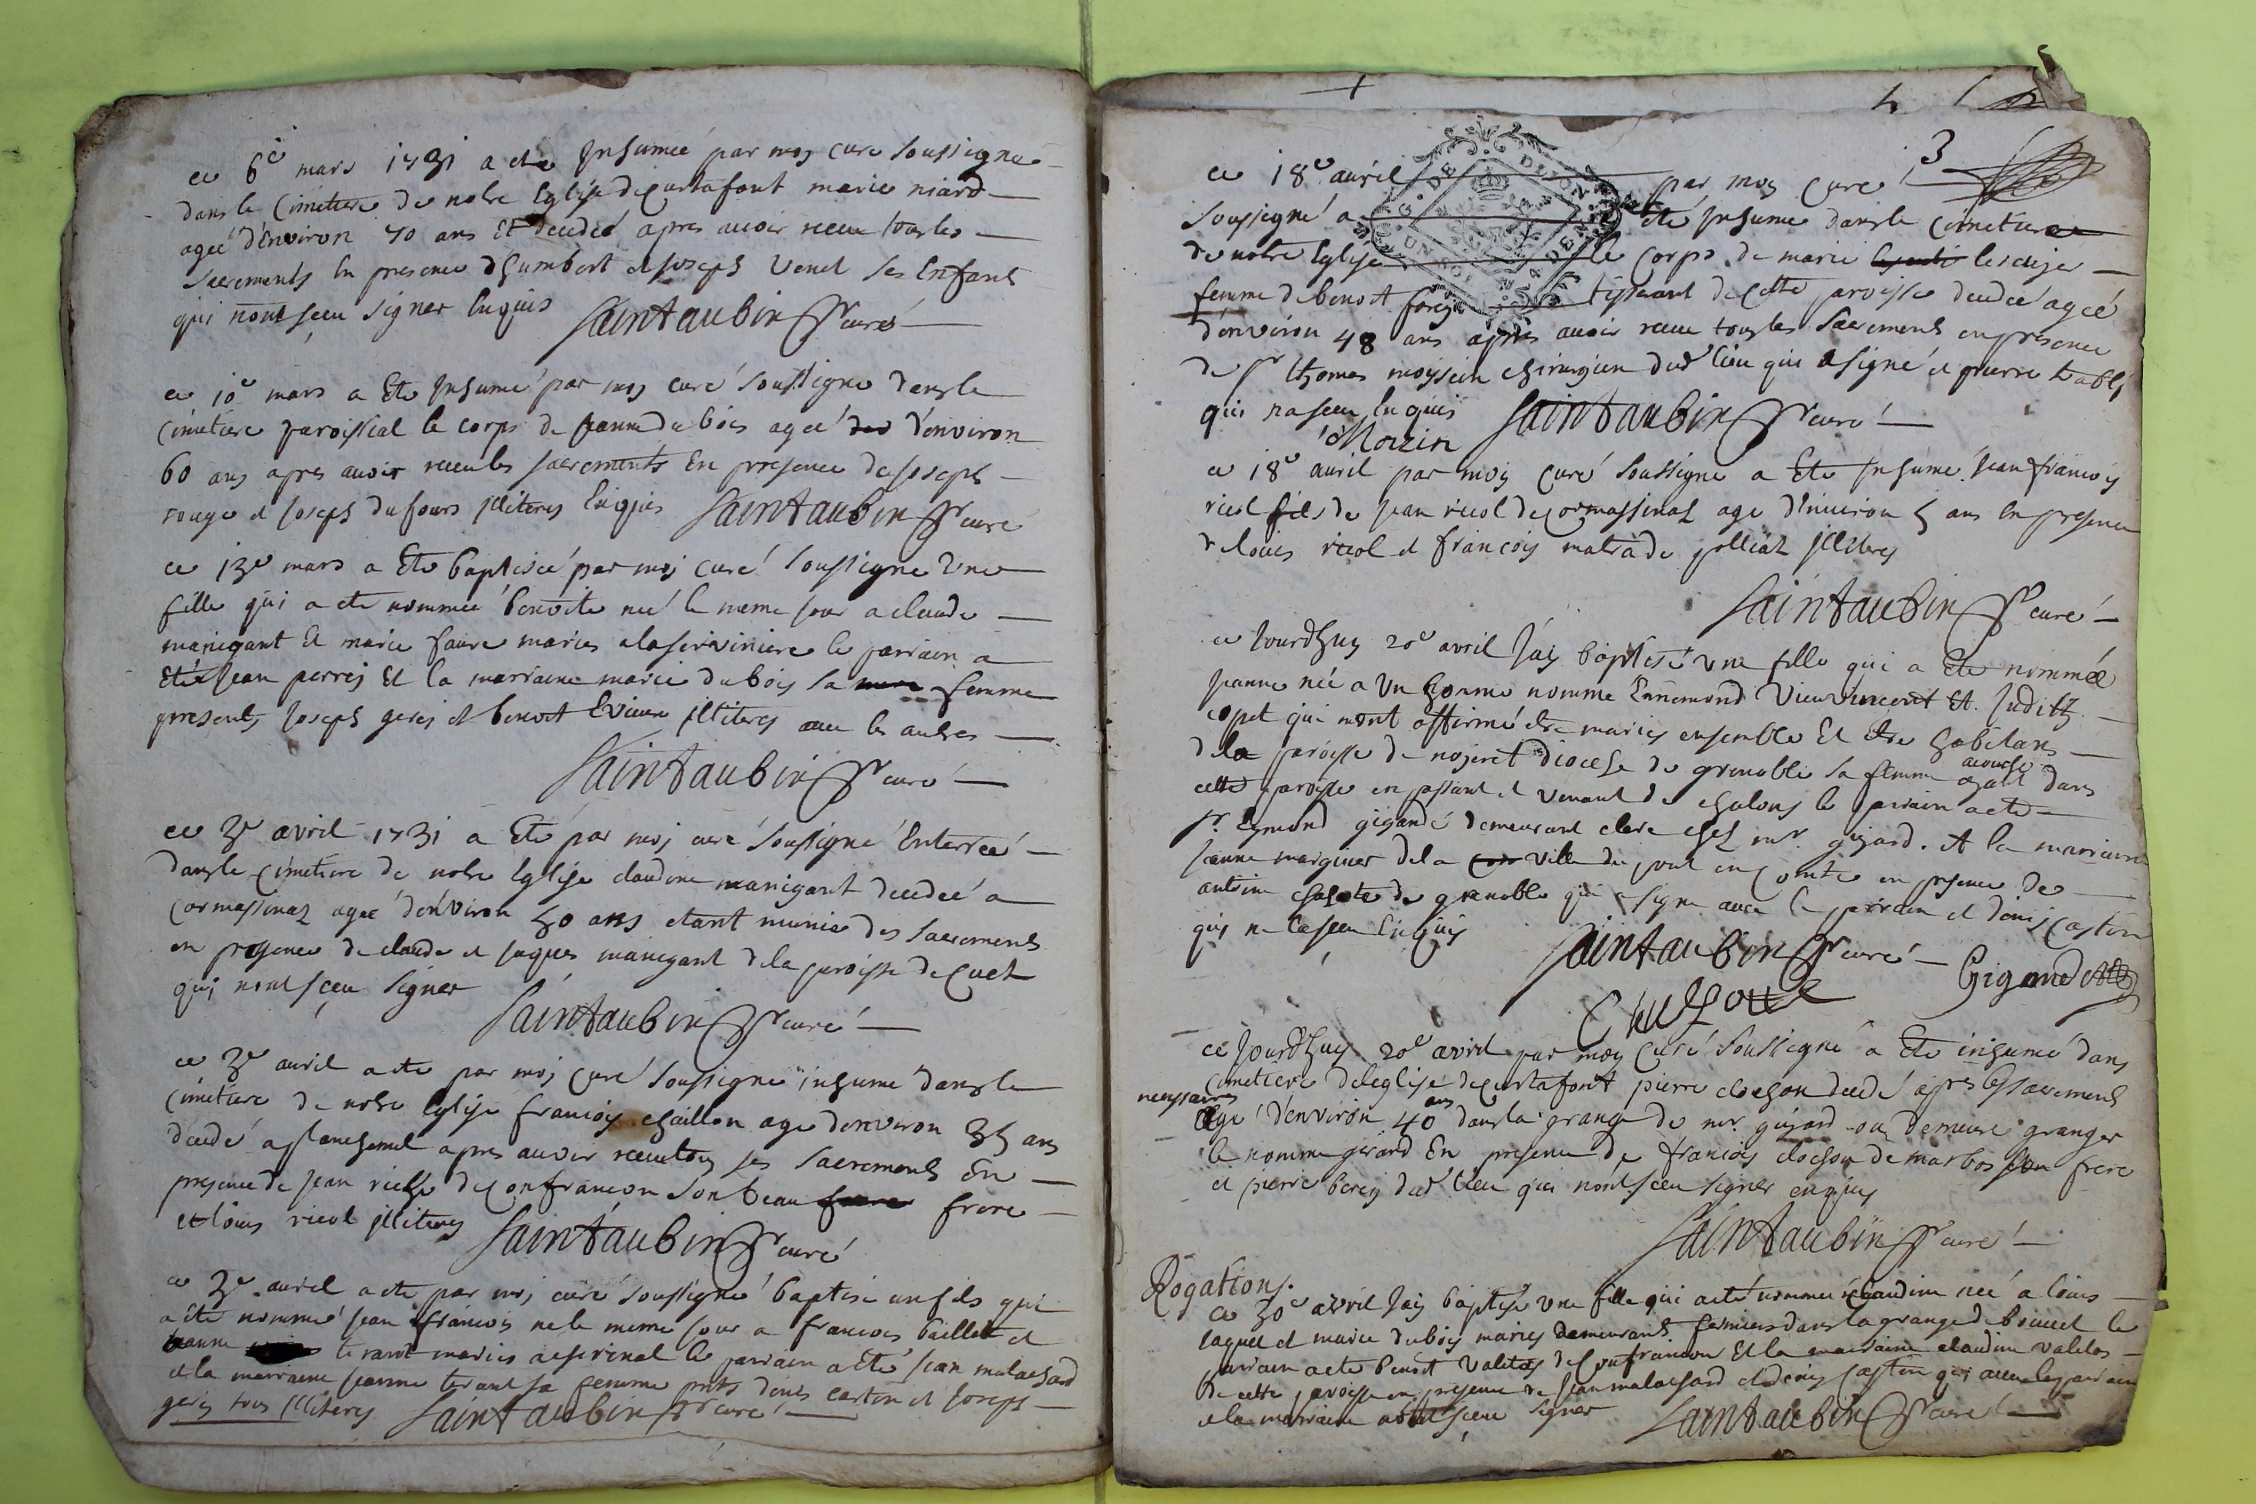 ce 6e mars 1731 a ete Inhumée par moy curé soussigné
dans le Cimetiere de notre Eglise de Curtafont marie niard
ageé d'Environ 70 ans Et decedeé apres avoir receu tous les
sacrements En presence d'humbert et joseph Venet ses Enfans
qui n'ont sceu signer Enquis Saintaubin curé
ce 10e mars a Eté Inhumé par moy curé soussigné dans le
Cimetiere paroissial le corps de jeanne du bois ageé d'environ
60 ans apres avoir receu les sacrements En presence de joseph
rouge et joseph du fours illiteres Enquis Saintaubin curé
ce 13e mars a Eté baptiseé par moy curé soussigné Une
fille qui a ete nommeé benoite neé le meme jour a claude
manigant Et marie faure maries a la serviniere le parrain a
Eté jean perrey Et la marraine marie du bois sa femme
presents joseph gerey et benoit illiteres avec les autres
Saintaubin curé
ce 3e avril 1731 a Eté par moy curé soussigné Enterreé
dans le Cimetiere de notre Eglise claudine manigant decedeé a
Cormassinaz ageé d'enViron 30 ans etant munie des sacrements
en presence de claude et jaques manigant de la paroisse de Cuet
qui n'ont sceu signer Saintaubin curé
ce 3e avril a ete par moy Curé soussigné inhumé dans le
Cimetiere de notre Eglise francois chaillon agé d'enViron 35 ans
decedé a planchemel apres avoir receu tous ses sacrements En
presence de jean riche de Confrancon son beau frere
et louis ricol illiteres Saintaubin curé
ce 3e avril a ete par moy curé soussigné baptisé un fils qui
a eté nommé jean francois né le meme jour a francois baillet et
jeanne terant maries a eserinal le parrain a Eté jean malachard
et la marraine jeanne terant sa femme pnts denis caston et joseph
gerey tous illiteres Saintaubin curé
3
ce 18e avril par moy curé
soussigné a eté Inhumé dans le Cimetiere
de notre Eglise le corps de marie lescuyer
femme de benoit forey tisserant de cette paroisse decedeé ageé
d'environ 48 ans apres avoir receu tous les sacrements en presence
de sr thomas moyssin chirurgien dud lieu qui a signé et pierre
qui na sceu Enquis Saintaubin curé
ce 18e avril par moy Curé soussigné a Eté Inhumé jean francois
ricol fils de jean ricol de Cormassinaz agé d'environ 5 ans En presence
de louis ricol et francois matra de illiteres
Saintaubin curé
ce jourdhuy 20e avril jay baptisé une fille qui a Eté nommée
jeanne neé a Un homme nommé Ennemond Vieu Vincent Et judith
copet qui mont affirmé etre maries ensemble Et etre habitans
de la paroisse de diocese de grenoble sa femme ayant accouché dans
cette paroisse en passant et Venant de chalons le parrain a ete
sr Egmond gigandé demeurant clerc chez mr guyard. et la marraine
jeanne marguier de la ville du pont en presence de
antoine de grenoble qui a signé avec le parrain et denis Caston
qui ne la sceu Enquis Saintaubin curé Gigandet
ce jourdhuy 20e avril par moy Curé soussigné a Eté inhumé dans
Cimetiere de leglise de Curtafont pierre clochon decedé apres les sacrements
necessaires
agé d'environ 40 ans dans la grange de mr guyard ou demeure granger
le nommé girard En presence de francois clochon de marbos son frere
et pierre berey dud lieu qui n'ont sceu signer enquis
Saintaubin curé
Rogations.
ce 30e avril jay baptisé Une fille qui a eté nommeé claudine neé a louis
jaquet et marie du bois maries demeurant fermiers dans la grange de le
parrain a ete benoit de Confrancon Et la marraine claudine
de cette paroisse en presence de jean malachard et denis caston qui avec le parrain
et la marraine n'ont sceu signer Saintaubin curé